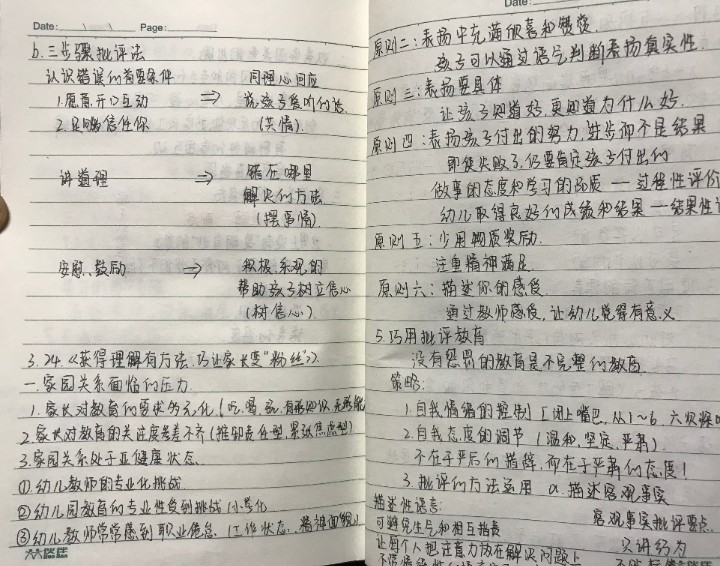 Date: Page:
b. 三步骤批评法
认识错误的首要条件 同理心回应
1. 愿意开口互动 ⇒ 说孩子爱听的话
2. 足够信任你 (共情)
讲道理 ⇒ 错在哪里
解决的方法
(摆事情)
安慰、鼓励 ⇒ 积极、乐观的
帮助孩子树立信心
(树信心)
3.24.《获得理解有方法,巧让家长变"粉丝"》
一. 家园关系面临的压力
1. 家长对教育的要求多元化(吃、喝、玩、有形知识、无形能
2. 家长对教育的关注度参差不齐(推卸责任型、紧张焦虑型)
3. 家园关系处于亚健康状态
① 幼儿教师的专业化挑战
② 幼儿园教育的专业性受到挑战 小学化
③ 幼儿教师常常感到职业倦怠 (工作状态、精神面貌)
Date:
原则二:表扬中充满欣喜和赞赏
孩子可以通过语气判断表扬真实性
原则三:表扬要具体
让孩子知道好,更知道为什么好.
原则四:表扬孩子付出的努力、进步而不是结果
即使失败了,仍要肯定孩子付出的
做事的态度和学习的品质 — 过程性评价
幼儿取得良好的成绩和结果 — 结果性
原则五:少用物质奖励.
注重精神满足
原则六:描述你的感受
通过教师感受,让幼儿觉得有意义
5. 巧用批评教育
没有惩罚的教育是不完整的教育
策略:
1. 自我情绪的控制 [闭上嘴巴,从1~6,六次深
2. 自我态度的调节 (温和、坚定、严肃)
不在于严厉的指责,而在于严肃的态度!
3. 批评的方法运用 a. 描述客观事实
描述性语言: 客观事实批评要点
可避免生气和相互指责 只讲行为
让每个人把注意力放在解决问题上